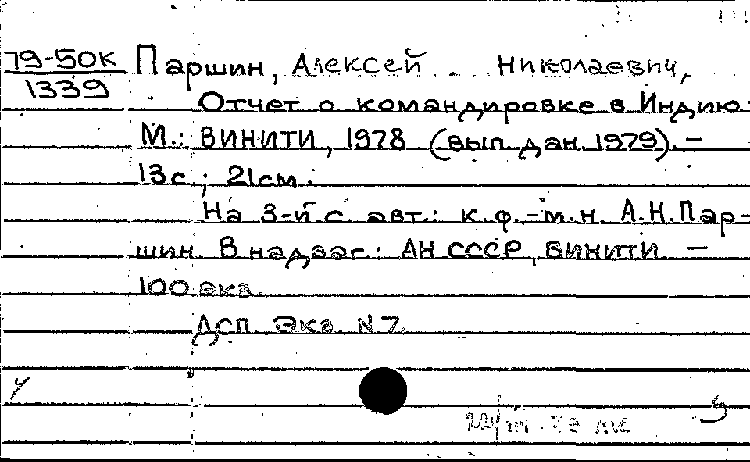 79-50К Паршин, Алексей Николаевич,
1339
Отчет о командировке в Индию.
М.: ВИНИТИ, 1978 (вып. дан. 1979). –
13 с.; 21 см.
На 3-й с. авт.: к.ф.-м.н. А.Н. Пар-
шин. В надзаг.: АН СССР, ВИНИТИ. –
100 экз.
Дсп. Экз. N 7